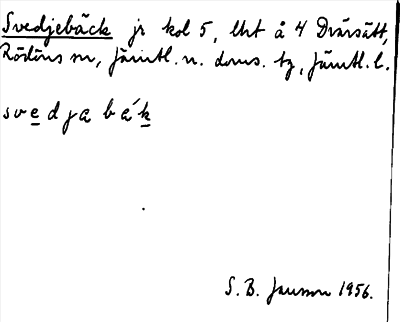 Svedjebäck jr kol 5, lht å 4 Dvärsätt,
Rödöns sn, Jämtl. n. doms. tg, Jämtl. l.
svedjabák
S. B. Jansson 1956.